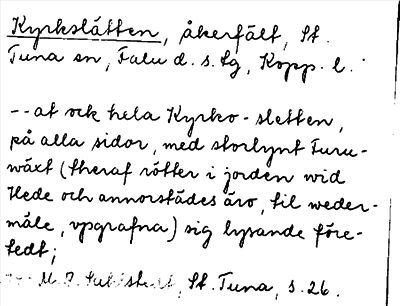 Kyrkslätten, åkerfält, St.
Tuna sn, Falu d. s. lg, Kopp. l.
-- at ock hela Kyrko-sletten,
på alla sidor, med storlynt Turu-
wäxt (theraf rötter i jorden wid
Hede och annorstädes äro, til weder-
mäle, vpgrafna) sig lysande före-
tedt;
St. Tuna, s. 26.